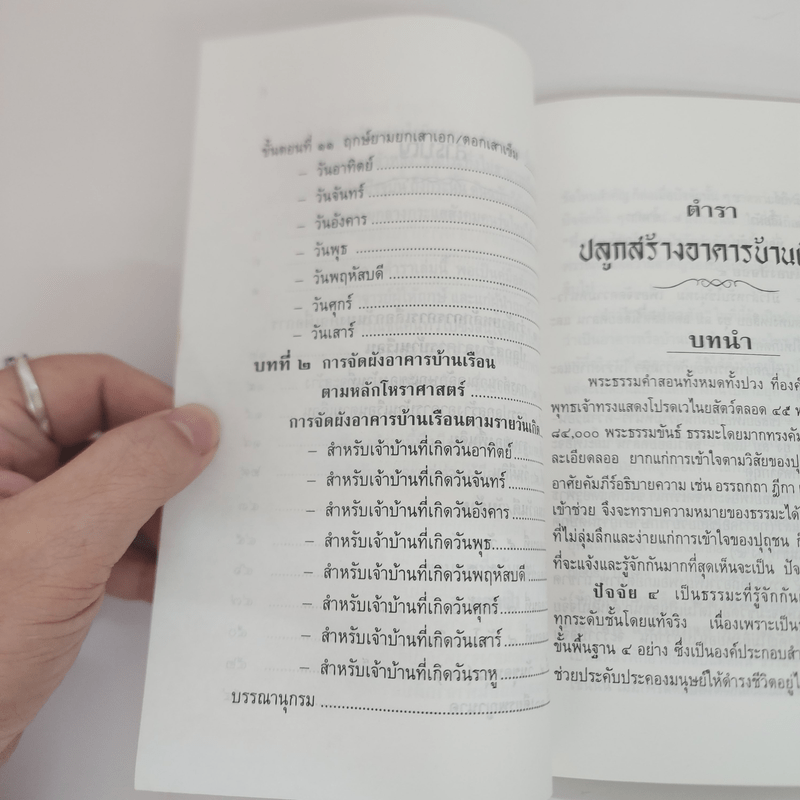 ขั้นตอนที่ ๑๑ ฤกษ์ยามยกเสาเอก/ตอกเสาเข็ม
– วันอาทิตย์
– วันจันทร์
– วันอังคาร
– วันพุธ
– วันพฤหัสบดี
– วันศุกร์
– วันเสาร์
บทที่ ๒ การจัดผังอาคารบ้านเรือน
ตามหลักโหราศาสตร์
การจัดผังอาคารบ้านเรือนตามรายวันเกิด
– สำหรับเจ้าบ้านที่เกิดวันอาทิตย์
– สำหรับเจ้าบ้านที่เกิดวันจันทร์
– สำหรับเจ้าบ้านที่เกิดวันอังคาร
– สำหรับเจ้าบ้านที่เกิดวันพุธ
– สำหรับเจ้าบ้านที่เกิดวันพฤหัสบดี
– สำหรับเจ้าบ้านที่เกิดวันศุกร์
– สำหรับเจ้าบ้านที่เกิดวันเสาร์
– สำหรับเจ้าบ้านที่เกิดวันราหู
บรรณานุกรม
ตำรา
ปลูกสร้างอาคารบ้าน
บทนำ
พระธรรมคำสอนทั้งหมดทั้งปวง ที่องค์
พุทธเจ้าทรงแสดงโปรดเวไนยสัตว์ตลอด ๔๕
๘๔,๐๐๐ พระธรรมขันธ์ ธรรมะโดยมากทรงคัม
ละเอียดลออ ยากแก่การเข้าใจตามวิสัยของปุ
อาศัยคัมภีร์อธิบายความ เช่น อรรถกถา ฎีกา
เข้าช่วย จึงจะทราบความหมายของธรรมะได้
ที่ไม่ลุ่มลึกและง่ายแก่การเข้าใจของปุถุชน
ที่จะแจ้งและรู้จักกันมากที่สุดเห็นจะเป็น ปัจ
ปัจจัย ๔ เป็นธรรมะที่รู้จักกัน
ทุกระดับชั้นโดยแท้จริง เนื่องเพราะเป็น
ขั้นพื้นฐาน ๔ อย่าง ซึ่งเป็นองค์ประกอบสำ
ช่วยประคับประคองมนุษย์ให้ดำรงชีวิตอยู่ได้